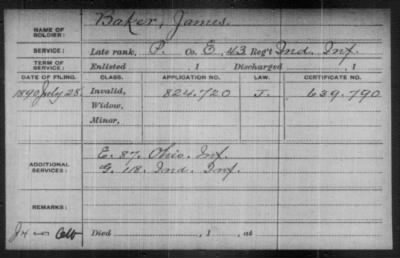 NAME OF SOLDIER: Baker, James.
SERVICE: Late rank, P. Co. E, 43 Reg't Ind. Inf.
TERM OF SERVICE: Enlisted , 1 Discharged , 1
DATE OF FILING. CLASS. APPLICATION NO. LAW. CERTIFICATE NO.
1890 July 28. Invalid, 824.720 J. 639.790
Widow,
Minor,
ADDITIONAL SERVICES: E. 87. Ohio. Inf.
G. 118. Ind. Inf.
REMARKS:
Died , 1 , at